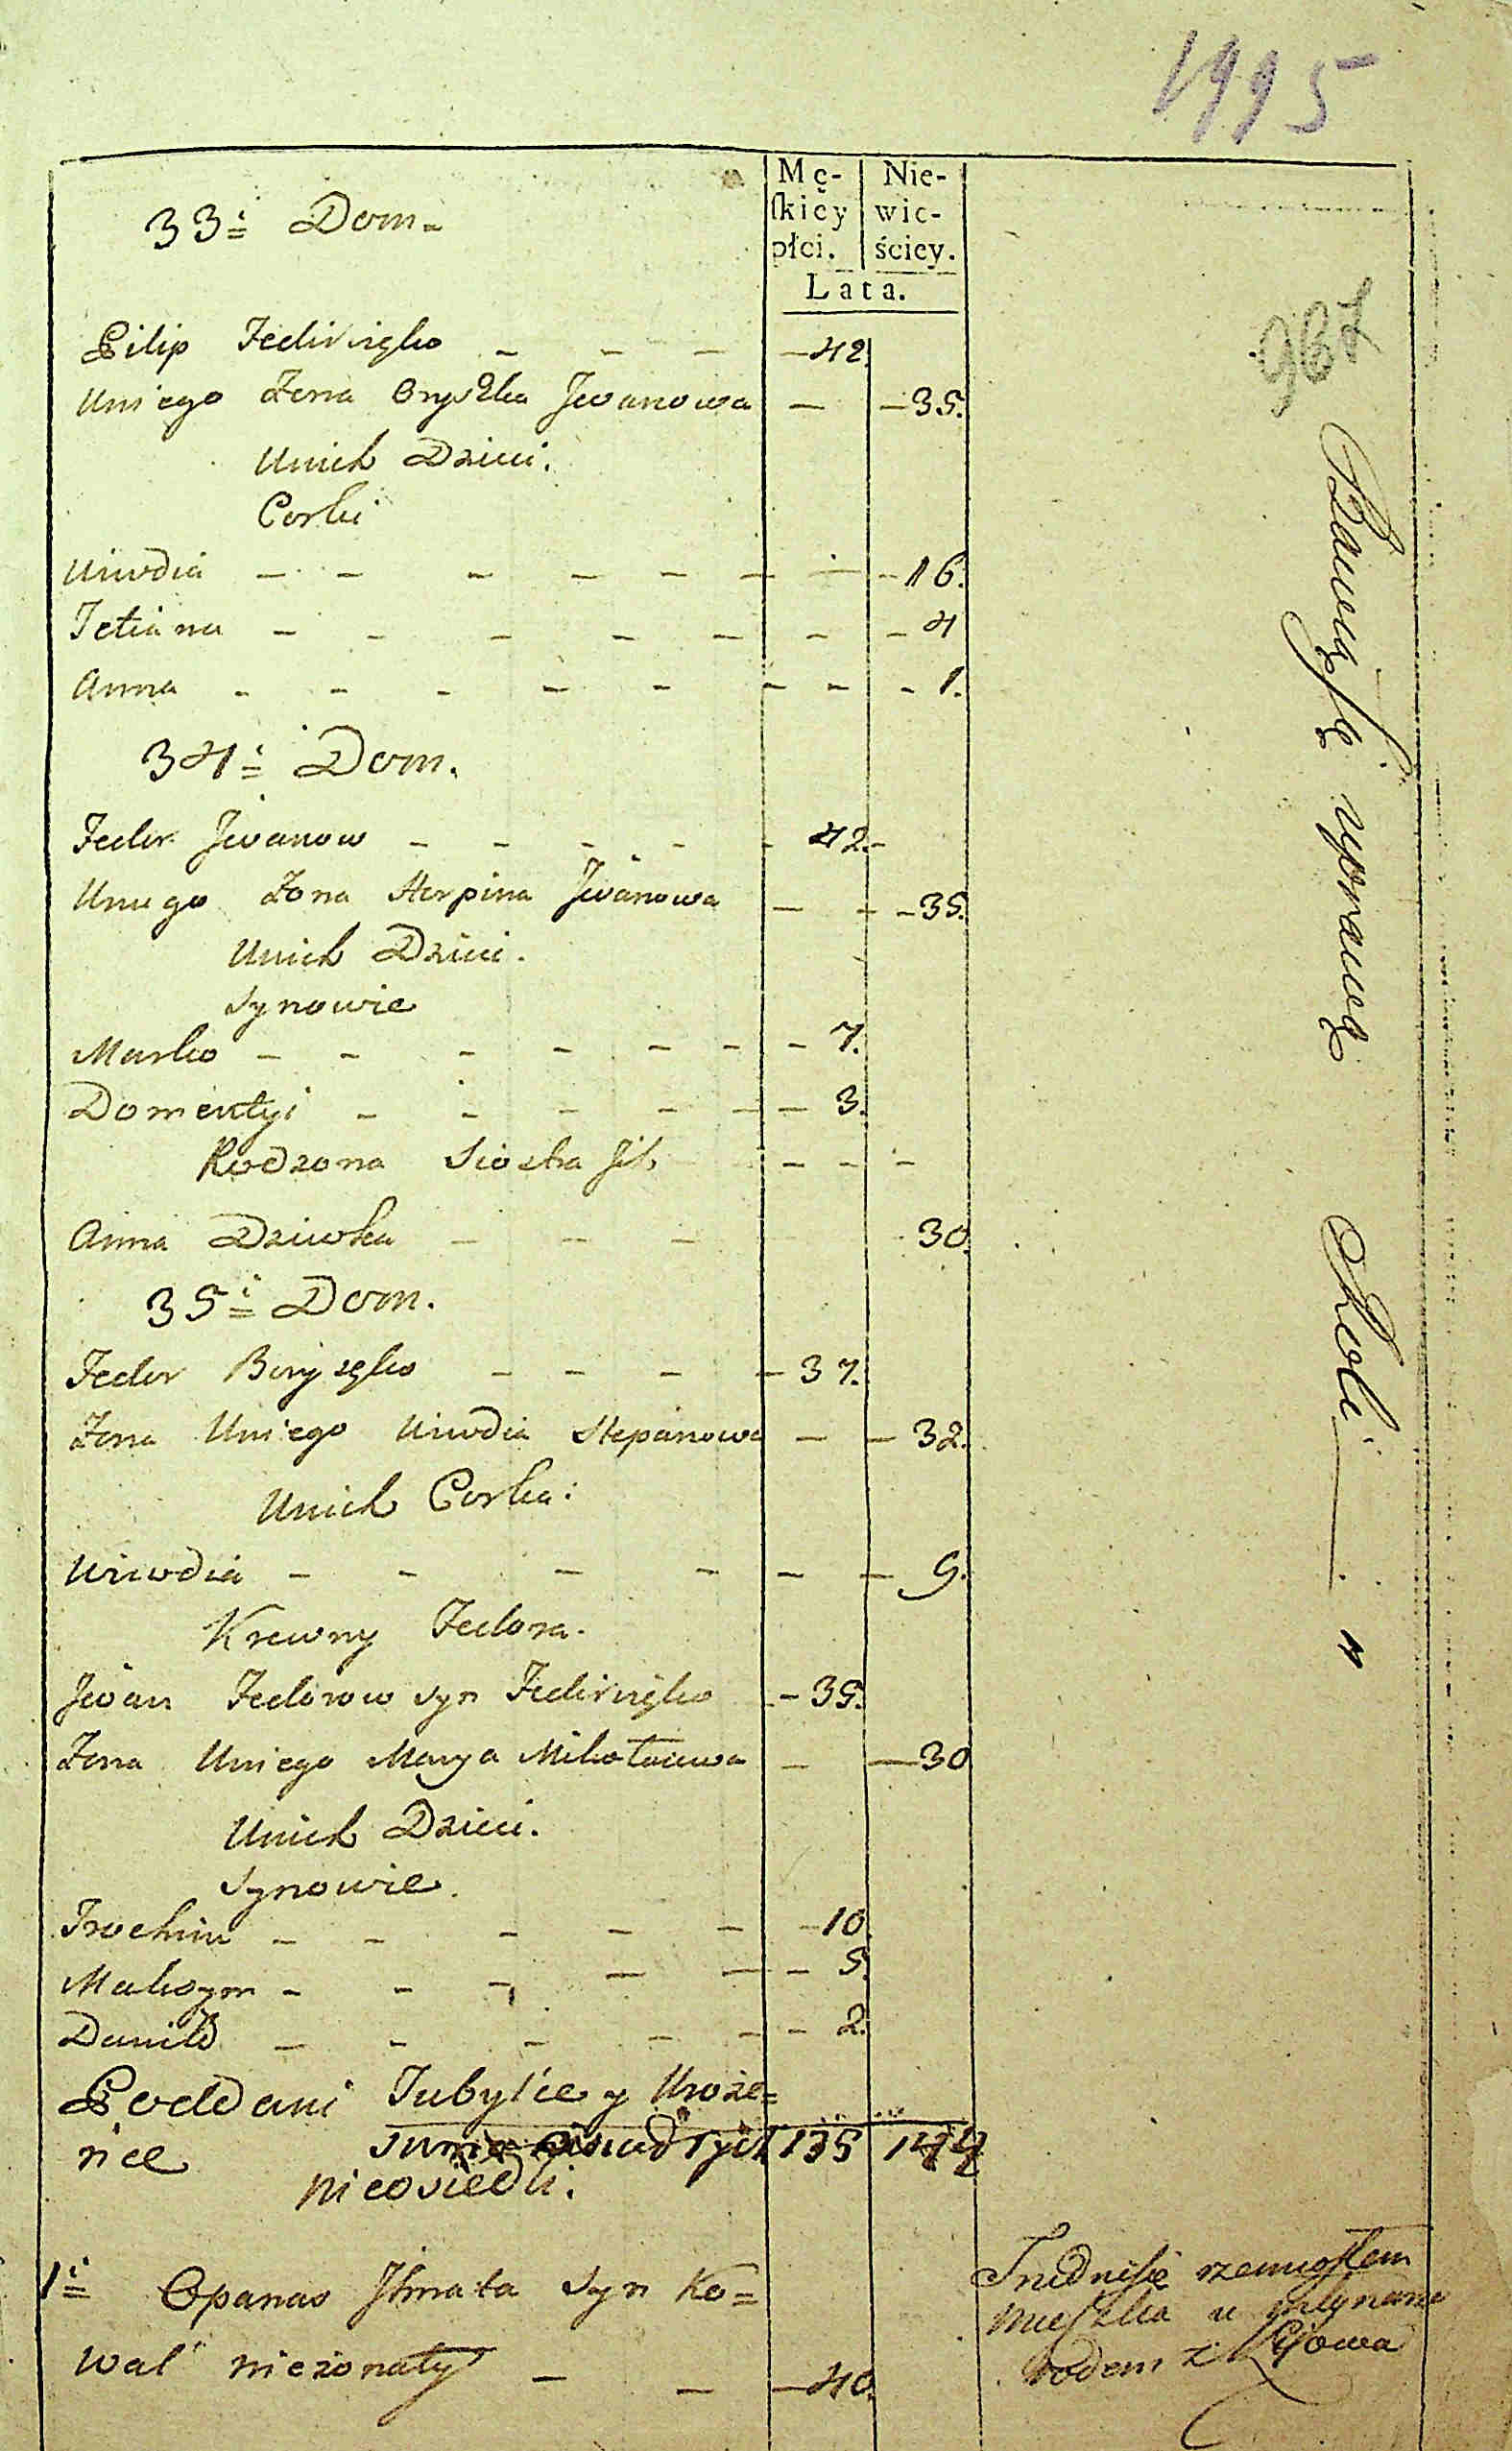 1995
Mę- Nie-
skiéy wie-
płci. ściey.
Lata.
967
33i Dom.
Pilip Fedirvigko - - - 42.
Uniego Zona Oryszka Jwanowa - 35.
Unich Dzieci.
Corki
Uiwdia - - - - - - 16.
Tetiana - - - - - - 4
Anna - - - - - - - 1.
34i Dom.
Fedor Jwanow - - - - - 42.
Uniego Zona Horpina Jwanowa - - 35.
Unich Dzieci.
Synowie
Marko - - - - - - - 7.
Domentyi - - - - - - 3.
Rodzona Siostra - - -
Anna Dziewka - - - 30.
35i Dom.
Fedor - - - - 37.
Zona Uniego Uiwdia Stepanowa - - 32.
Unich Corka.
Uiwdia - - - - - - 9.
Krewny Fedora.
Jwan Fedorow syn - 35.
Zona Uniego Marya Mikołaiowa - - 30
Unich Dzieci.
Synowie.
Trochim - - - - - 10
Maksym - - - - - - 5.
Daniło - - - - - - 2.
Poddani Tubylce y Uroże=
nce Suma 135 144
nieosiedli.
1i Opanas Syn Ko=
wal nieżonaty - - - 40.
Bawią się uprawą
Roli
Trudni się rzemiosłem
mieszka u młynarza
rodem z Kijowa